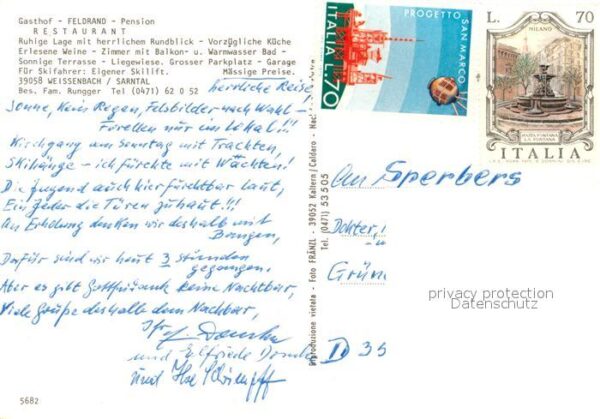 Gasthof - FELDRAND - Pension
RESTAURANT
Ruhige Lage mit herrlichem Rundblick - Vorzügliche Küche
Erlesene Weine - Zimmer mit Balkon- u. Warmwasser Bad -
Sonnige Terrasse - Liegewiese. Grosser Parkplatz - Garage
Für Skifahrer: Eigener Skilift. Mässige Preise.
39058 WEISSENBACH / SARNTAL
Bes. Fam. Rungger Tel (0471) 62 0 52
herrliche Reise,
Sonne, kein Regen, Felsbilder nach Wahl -
Forellen nur im Lokal!!!
Kirchgang am Sonntag mit Trachten,
Skihänge - ich fürchte mit Wächten!
Die Jugend auch hier fürchtbar laut,
Ein Jeder die Türen zuhaut!!!
An Erholung denken wir deshalb mit
Bangen,
Dafür sind wir heut 3 Stunden
gegangen.
Aber es gibt Gottseidank keine Nachtbar,
Viele Grüße deshalb dem Nachbar,
Ihr
und Elfriede
und Ilse
5682
Riproduzione vietata - Foto FRÄNZL - 39052 Kaltern / Caldaro -
Tel. (0471) 53505
PROGETTO SAN MARCO
ITALIA L.70
L. 70
MILANO
PIAZZA FONTANA
LA FONTANA
ITALIA
An Sperbers
Dokter,
Grün
privacy protection
Datenschutz
D 35